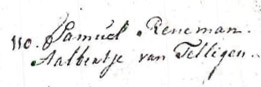 110. Samuel Reneman.
Aalbertje van Telligen.